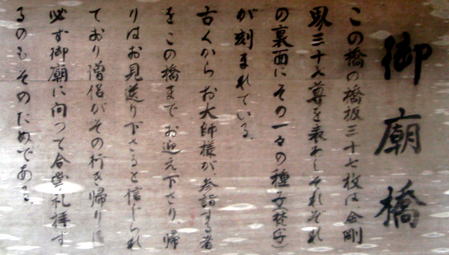 御廟橋
この橋の橋板三十七枚は金剛
界三十七尊を表わしそれぞれ
の裏面にその一々の種子(梵字)
が刻まれている。
古くからお大師様が参詣する者
をこの橋までお迎え下さり、帰
りはお見送り下さると信じられ
ており僧侶がその行き帰りに
必ず御廟に向って合掌礼拝す
るのもそのためである。